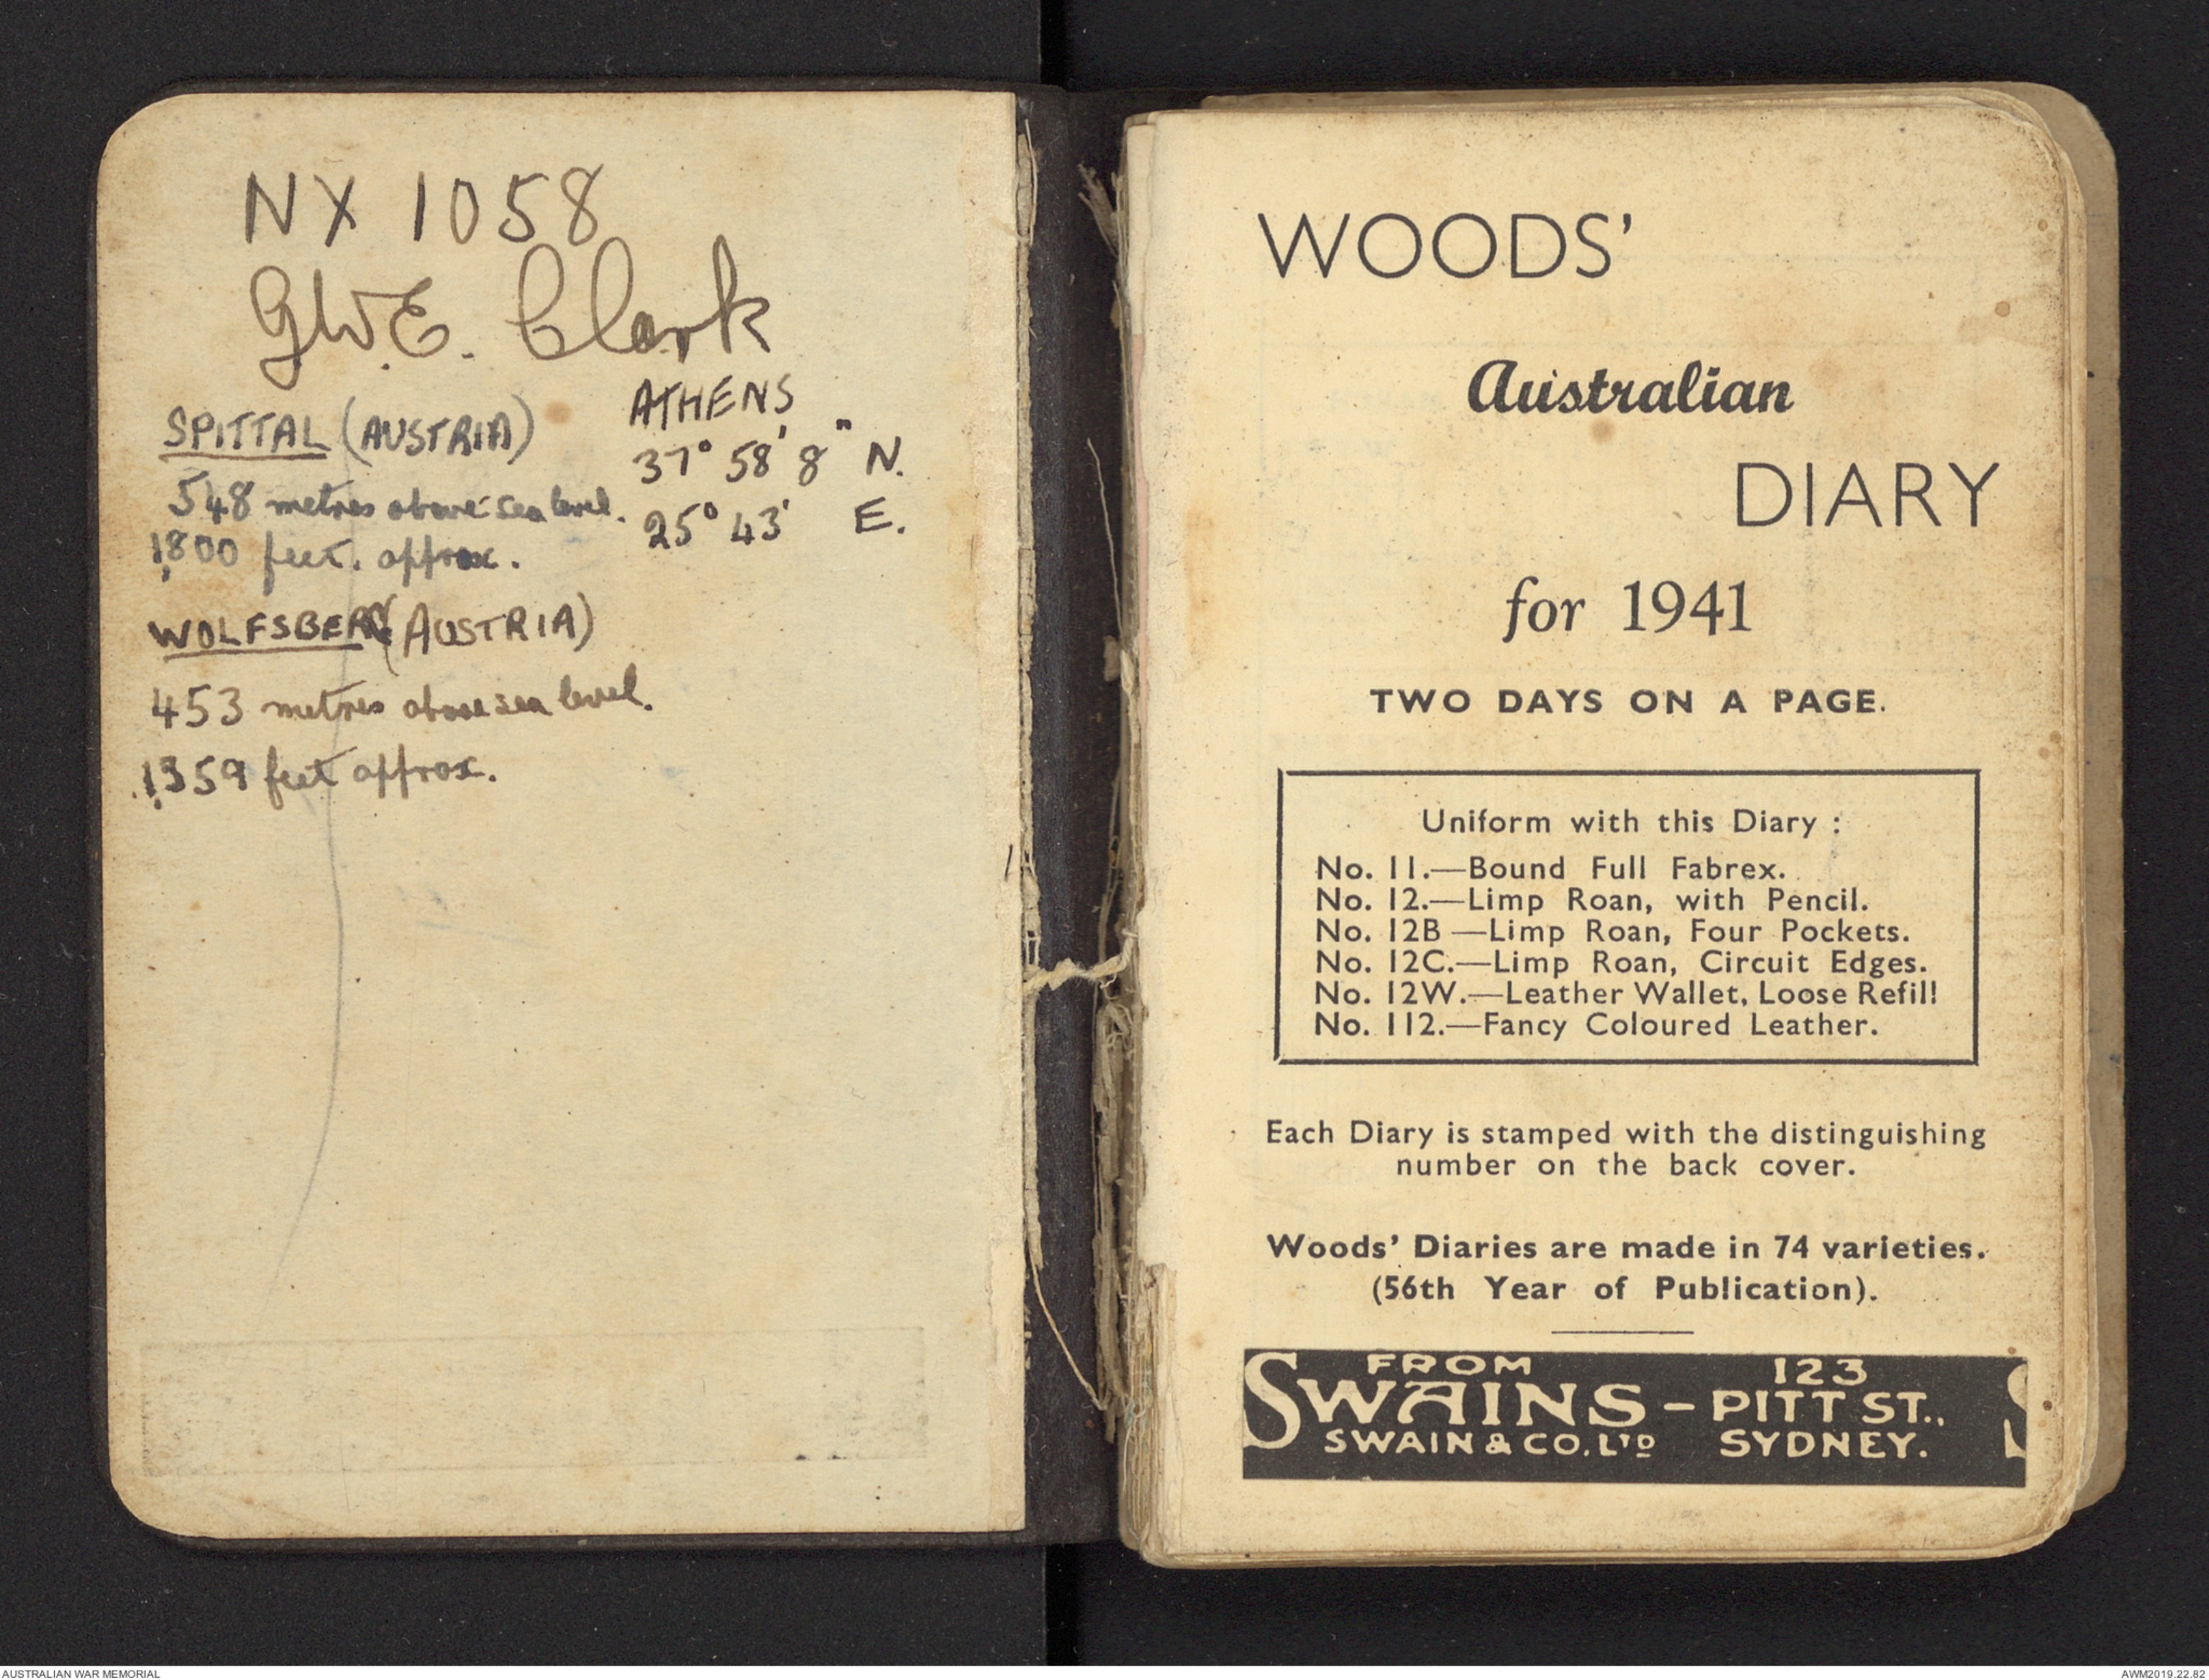 NX 1058
G.W.E. Clark
SPITTAL (AUSTRIA)
548 metres above sea level.
1,800 feet. approx.
WOLFSBERG (AUSTRIA)
453 metres above sea level.
1,359 feet approx.
ATHENS
37° 58' 8" N.
25° 43' E.
WOODS'
Australian
DIARY
for 1941
TWO DAYS ON A PAGE.
Uniform with this Diary :
No. 11.—Bound Full Fabrex.
No. 12.—Limp Roan, with Pencil.
No. 12B —Limp Roan, Four Pockets.
No. 12C.—Limp Roan, Circuit Edges.
No. 12W.—Leather Wallet, Loose Refill
No. 112.—Fancy Coloured Leather.
Each Diary is stamped with the distinguishing
number on the back cover.
Woods' Diaries are made in 74 varieties.
(56th Year of Publication).
FROM
SWAINS – 123 PITT ST.,
SWAIN & CO. LTD SYDNEY.
AUSTRALIAN WAR MEMORIAL
AWM2019.22.82